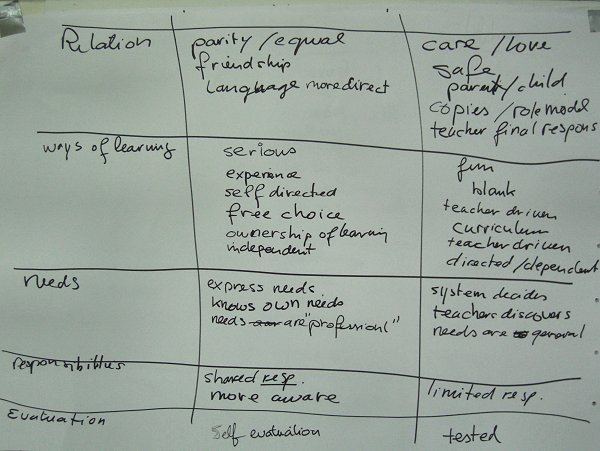 Relation
parity / equal
friendship
Language more direct
care / love
safe
parent / child
copies / role model
teacher final respons
ways of learning
serious
experience
self directed
free choice
ownership of learning
independent
fun
blank
teacher driven
curriculum
teacher driven
directed / dependent
needs
express needs
knows own needs
needs are "professional"
system decides
teachers discovers
needs are general
responsibilities
shared resp.
more aware
limited resp.
Evaluation
self evaluation
tested